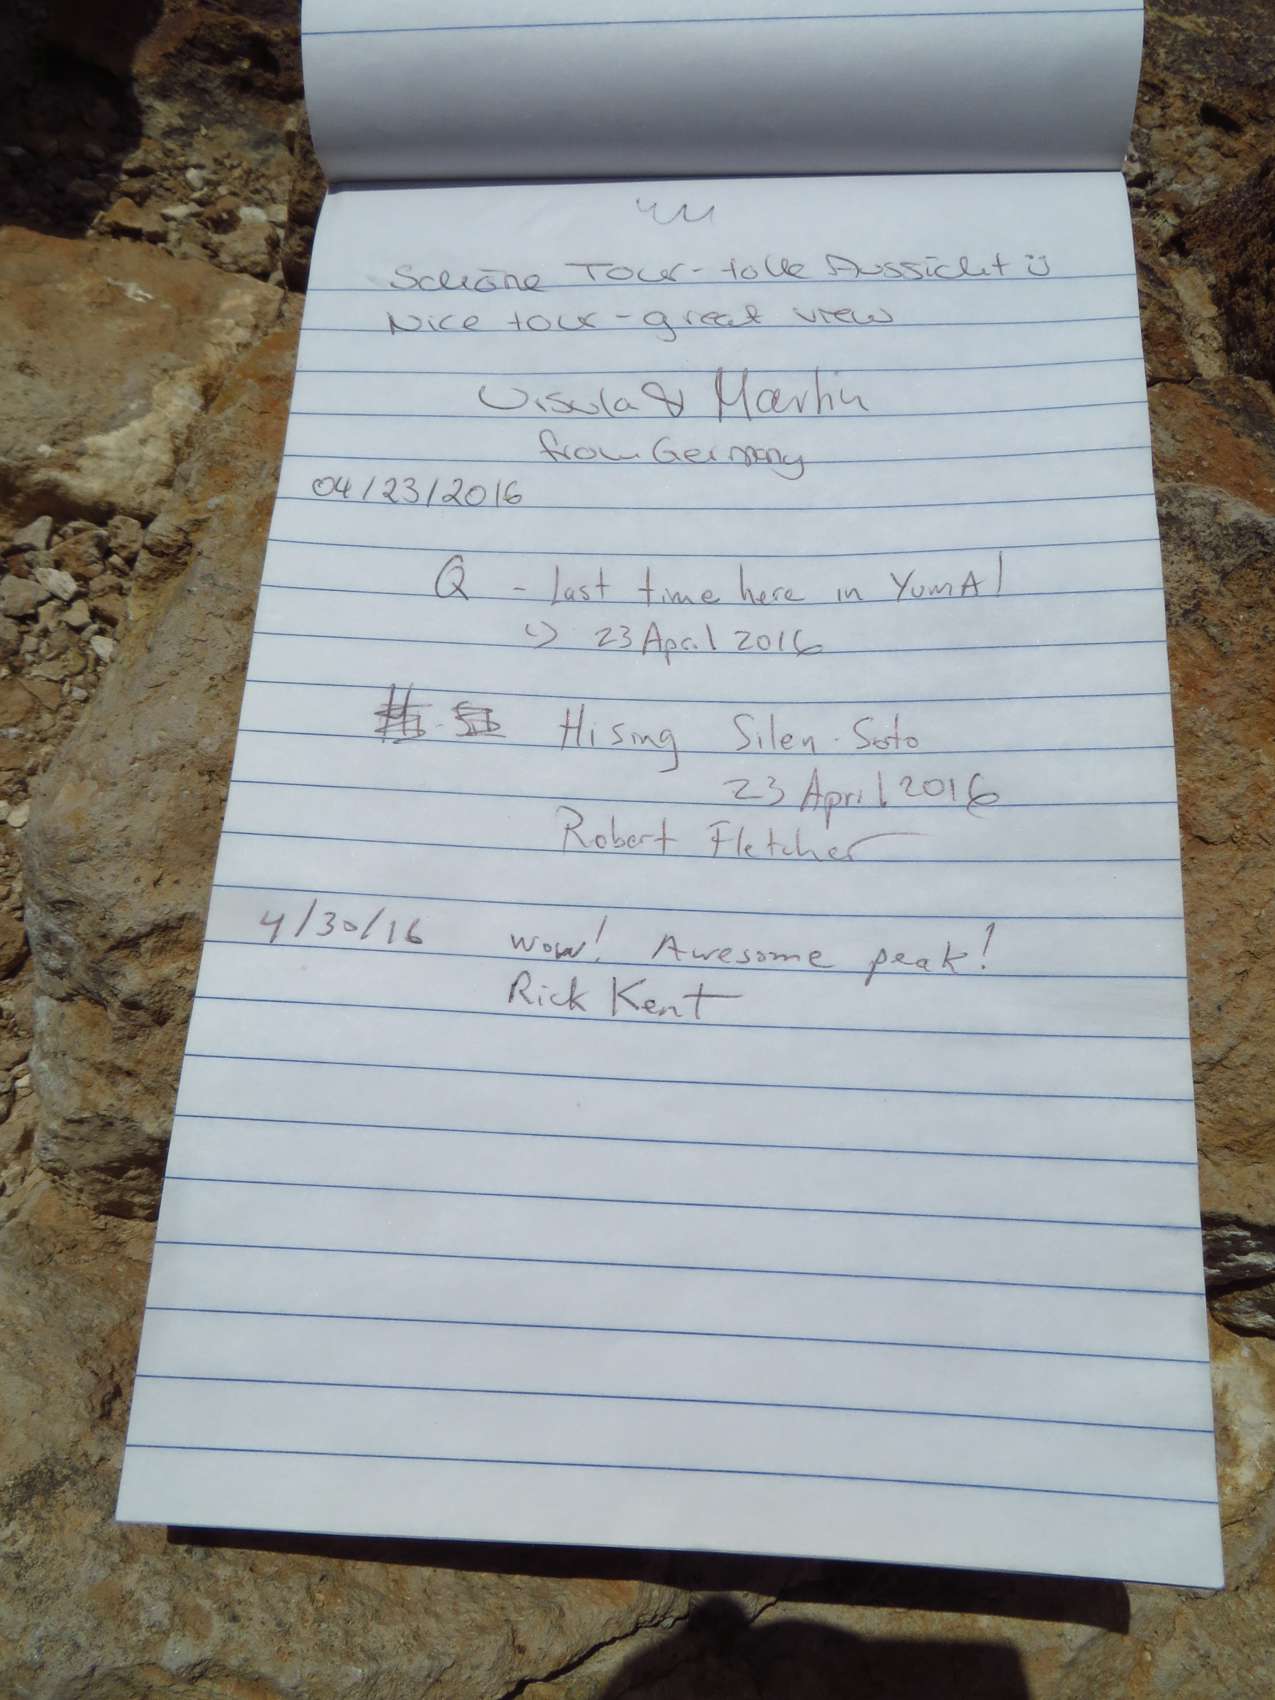 Schöne Tour - tolle Aussicht ü
Nice tour - great view
Ursula & Martin
from Germany
04/23/2016
Q - last time here in YumA!
↳ 23 April 2016
Hising Silen-Soto
23 April 2016
Robert Fletcher
4/30/16 Wow! Awesome peak!
Rick Kent